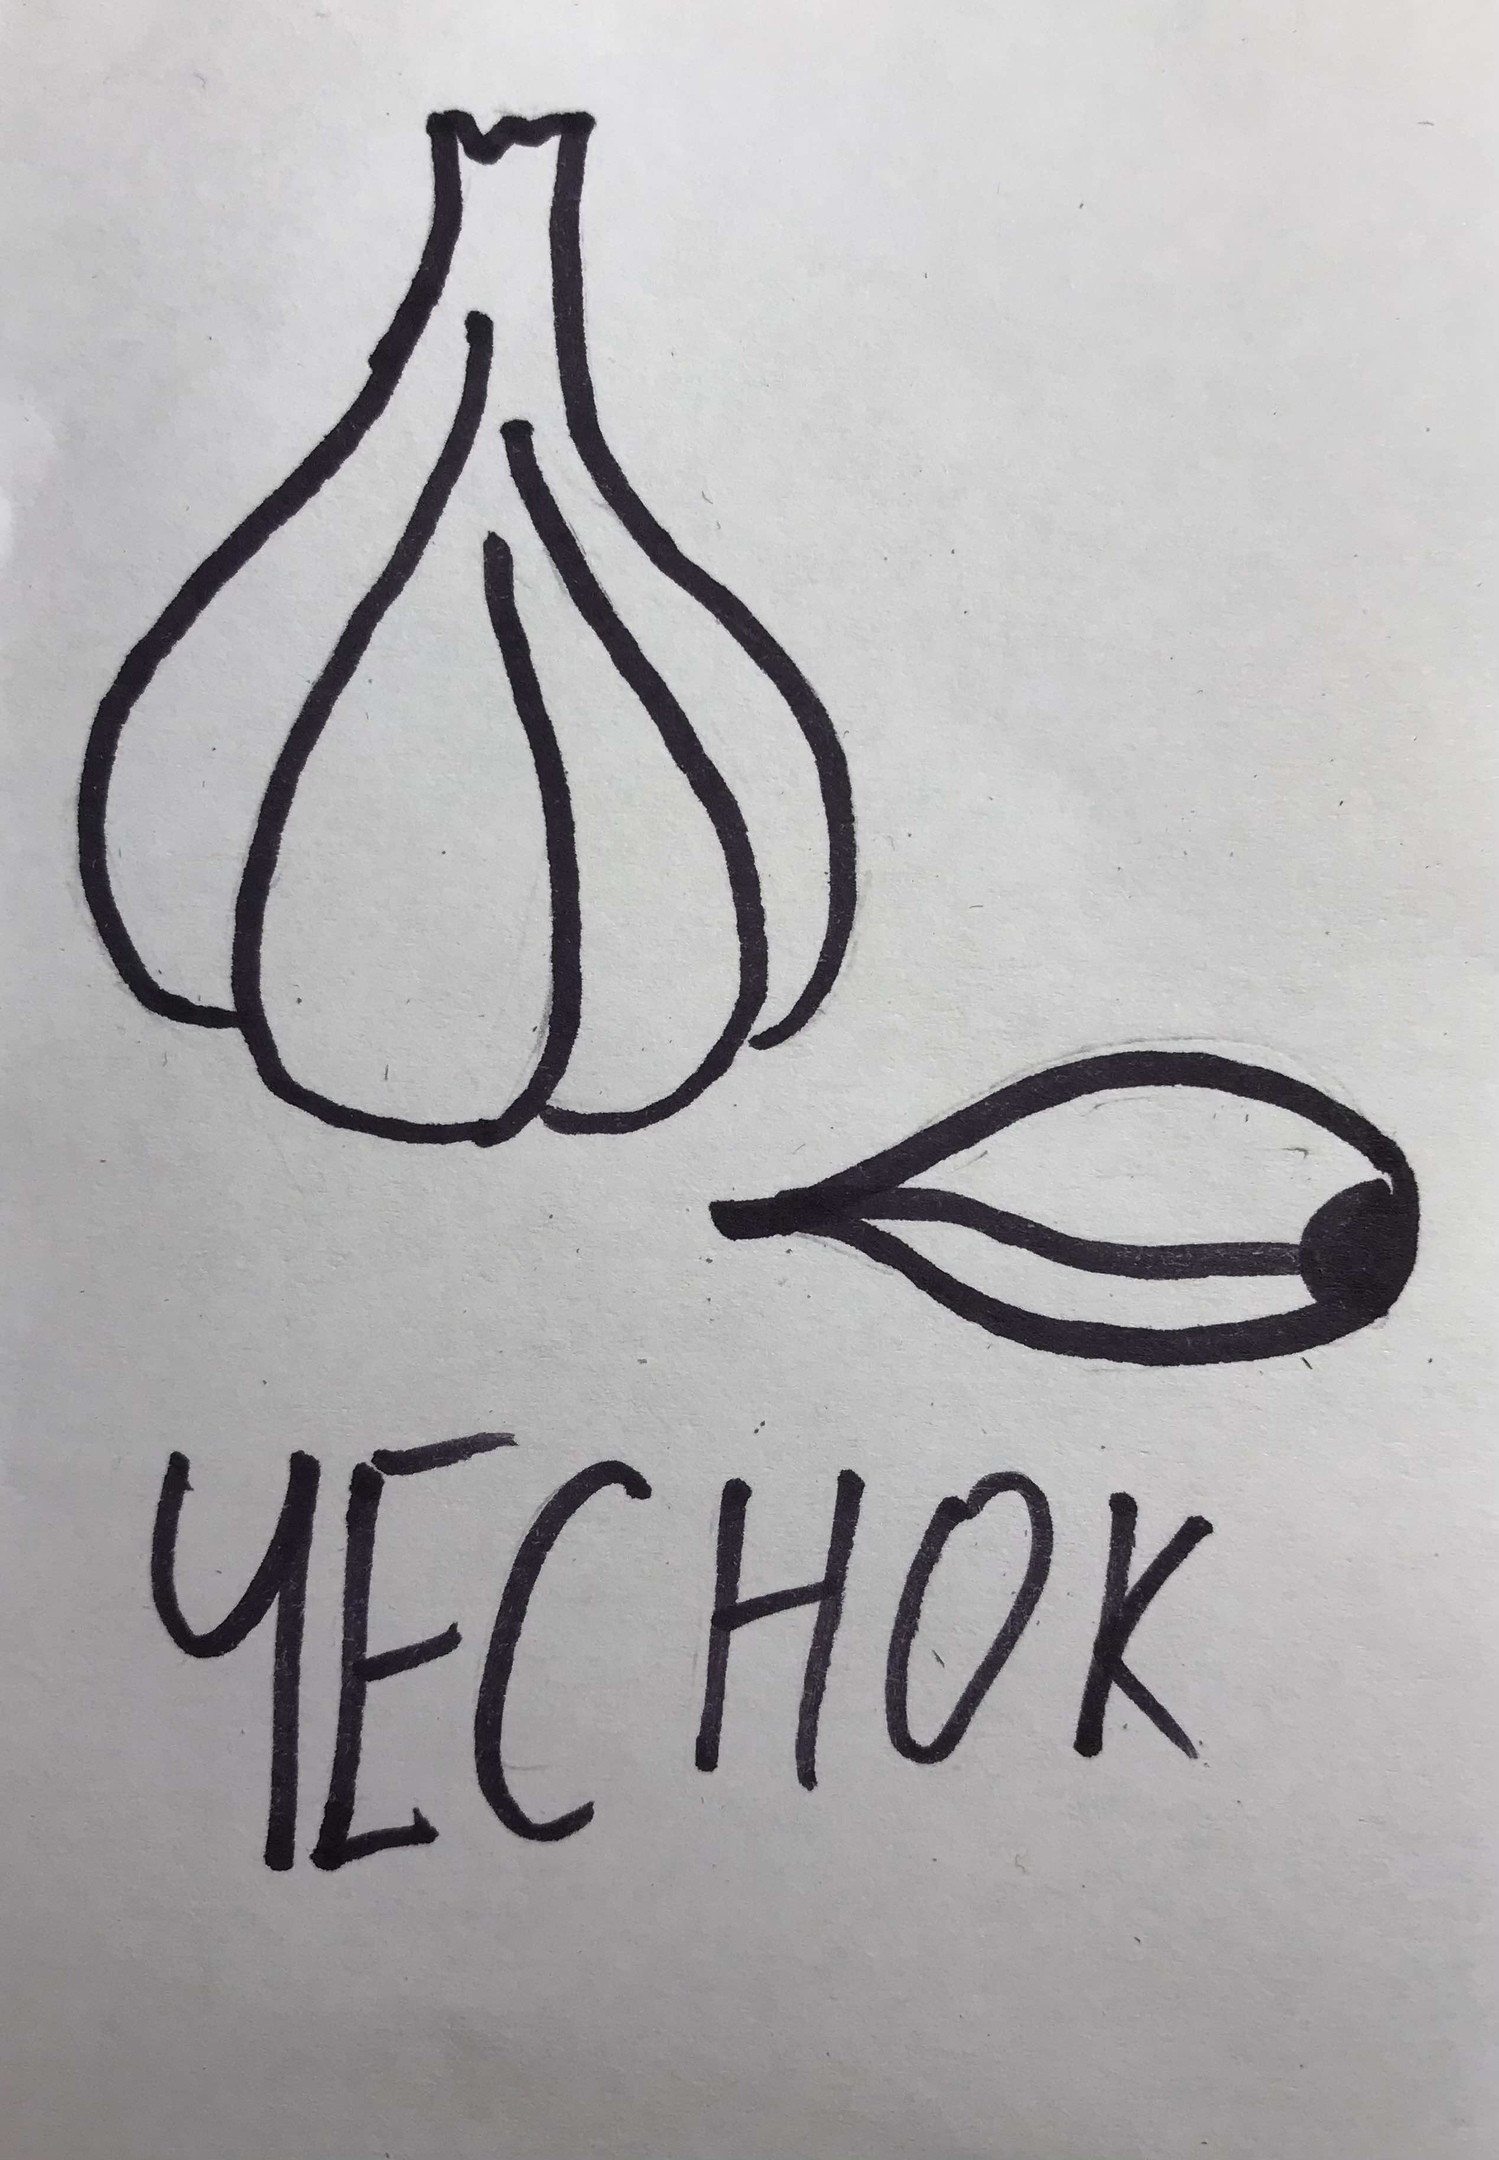 ЧЕСНОК